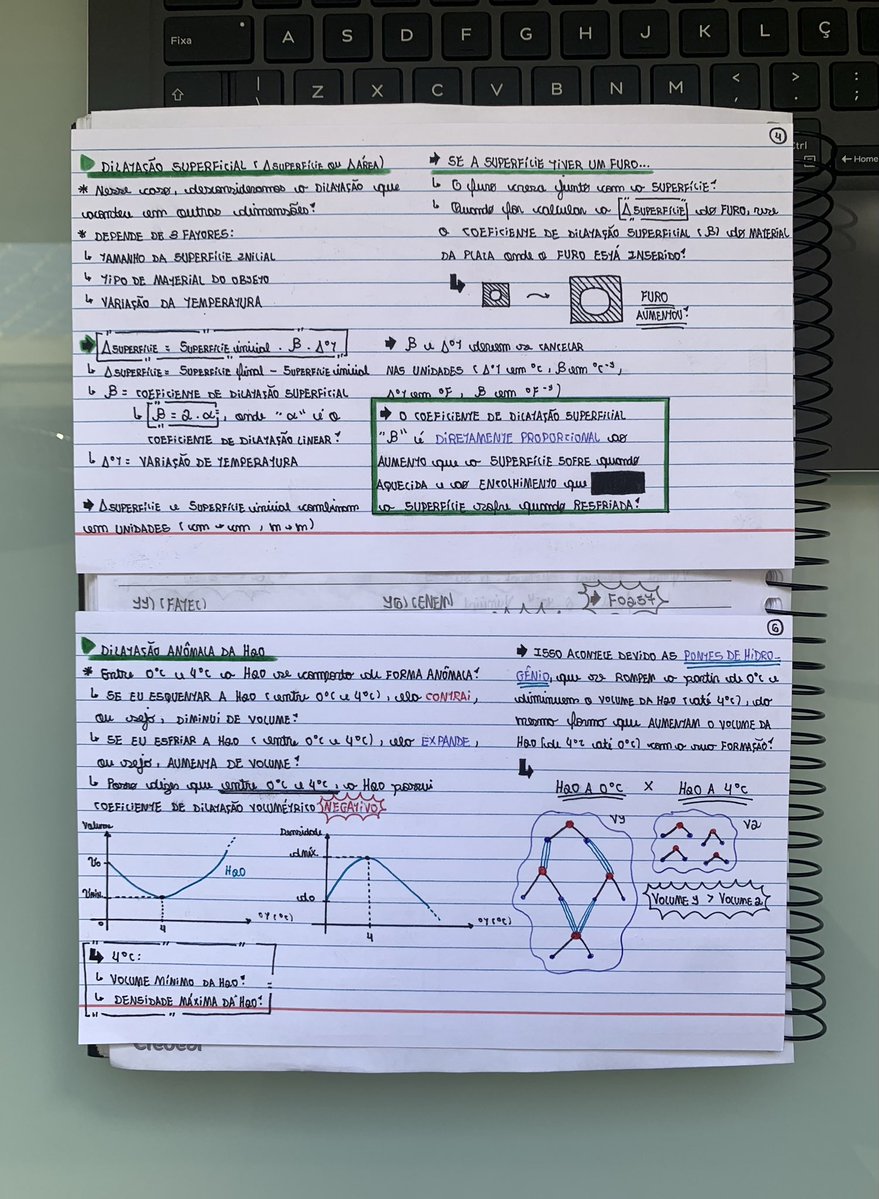 Fixa
A S D F G H J K L Ç
| \ Z X C V B N M < , > . : ;
Ctrl
Home
4
DILATAÇÃO SUPERFICIAL (ΔSUPERFÍCIE OU ΔÁREA)
* Nesse caso, desconsideramos a DILATAÇÃO que
acontece em outras dimensões!
* DEPENDE DE 3 FATORES:
↳ TAMANHO DA SUPERFÍCIE INICIAL
↳ TIPO DE MATERIAL DO OBJETO
↳ VARIAÇÃO DA TEMPERATURA
➔ ΔSUPERFÍCIE = SUPERFÍCIE inicial . β . Δ°T
↳ ΔSUPERFÍCIE = SUPERFÍCIE final - SUPERFÍCIE inicial
↳ β = COEFICIENTE DE DILATAÇÃO SUPERFICIAL
↳ β = 2 . α, onde "α" é o
COEFICIENTE DE DILATAÇÃO LINEAR!
↳ Δ°T = VARIAÇÃO DE TEMPERATURA
➔ ΔSUPERFÍCIE e SUPERFÍCIE inicial combinam
em UNIDADES (cm → cm, m → m)
➔ SE A SUPERFÍCIE TIVER UM FURO...
↳ O furo cresce junto com a SUPERFÍCIE!
↳ Quando for calcular a ΔSUPERFÍCIE do FURO, use
O COEFICIENTE DE DILATAÇÃO SUPERFICIAL (β) do MATERIAL
DA PLACA onde o FURO ESTÁ INSERIDO!
FURO
AUMENTOU!
➔ β e Δ°T devem se CANCELAR
NAS UNIDADES (Δ°T em °C, β em °C⁻¹,
Δ°T em °F, β em °F⁻¹)
➔ O COEFICIENTE DE DILATAÇÃO SUPERFICIAL
"β" é DIRETAMENTE PROPORCIONAL ao
AUMENTO que a SUPERFÍCIE SOFRE quando
AQUECIDA e ao ENCOLHIMENTO que
a SUPERFÍCIE sofre quando RESFRIADA!
11) (FATEC)
16) (ENEM)
➔ FO257
6
DILATAÇÃO ANÔMALA DA H2O
* Entre 0°C e 4°C a H2O se comporta de FORMA ANÔMALA!
↳ SE EU ESQUENTAR A H2O (entre 0°C e 4°C), ela CONTRAI,
ou seja, DIMINUI DE VOLUME!
↳ SE EU ESFRIAR A H2O (entre 0°C e 4°C), ela EXPANDE,
ou seja, AUMENTA DE VOLUME!
↳ Posso dizer que entre 0°C e 4°C, a H2O possui
COEFICIENTE DE DILATAÇÃO VOLUMÉTRICO NEGATIVO
Volume
V0
Vmín
0
4
H2O
°T (°C)
Densidade
dmáx
d0
4
°T (°C)
➔ 4°C:
↳ VOLUME MÍNIMO DA H2O!
↳ DENSIDADE MÁXIMA DA H2O!
➔ ISSO ACONTECE DEVIDO AS PONTES DE HIDRO-
GÊNIO, que se ROMPEM a partir de 0°C e
diminuem o VOLUME DA H2O (até 4°C), da
mesma forma que AUMENTAM O VOLUME DA
H2O (de 4°C até 0°C) com a sua FORMAÇÃO!
H2O A 0°C X H2O A 4°C
V1
V2
VOLUME 1 > VOLUME 2